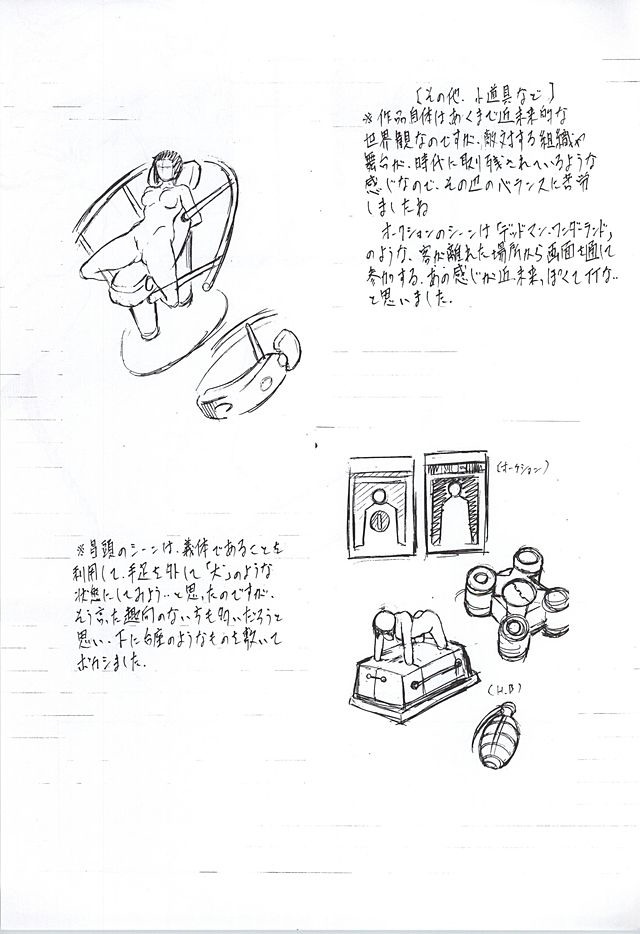 [その他、小道具など]
※作品自体はあくまで近未来的な
世界観なのですが、敵対する組織や
舞台が、時代に取り残されているような
感じなので、その辺のバランスに苦労
しましたね
オークションのシーンは「デッドマン・ワンダーランド」
のような、客が離れた場所から画面を通して
参加する、あの感じが近未来っぽくてイイな…
と思いました.
(オークション)
※冒頭のシーンは、義体であることを
利用して、手足を外して「犬」のような
状態にしてみよう…と思ったのですが、
そう言った趣向のない方も多いだろうと
思い、下に台座のようなものを敷いて
ボカシました.
(H.B)